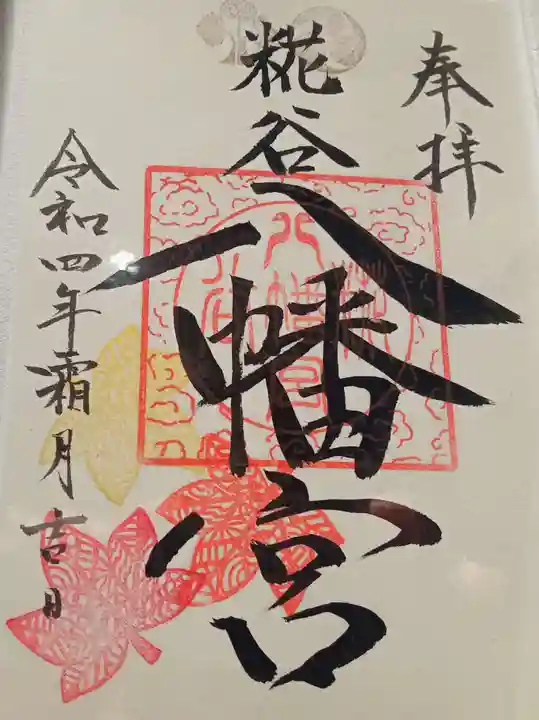 奉拝
糀谷
八幡宮
令和四年霜月吉日